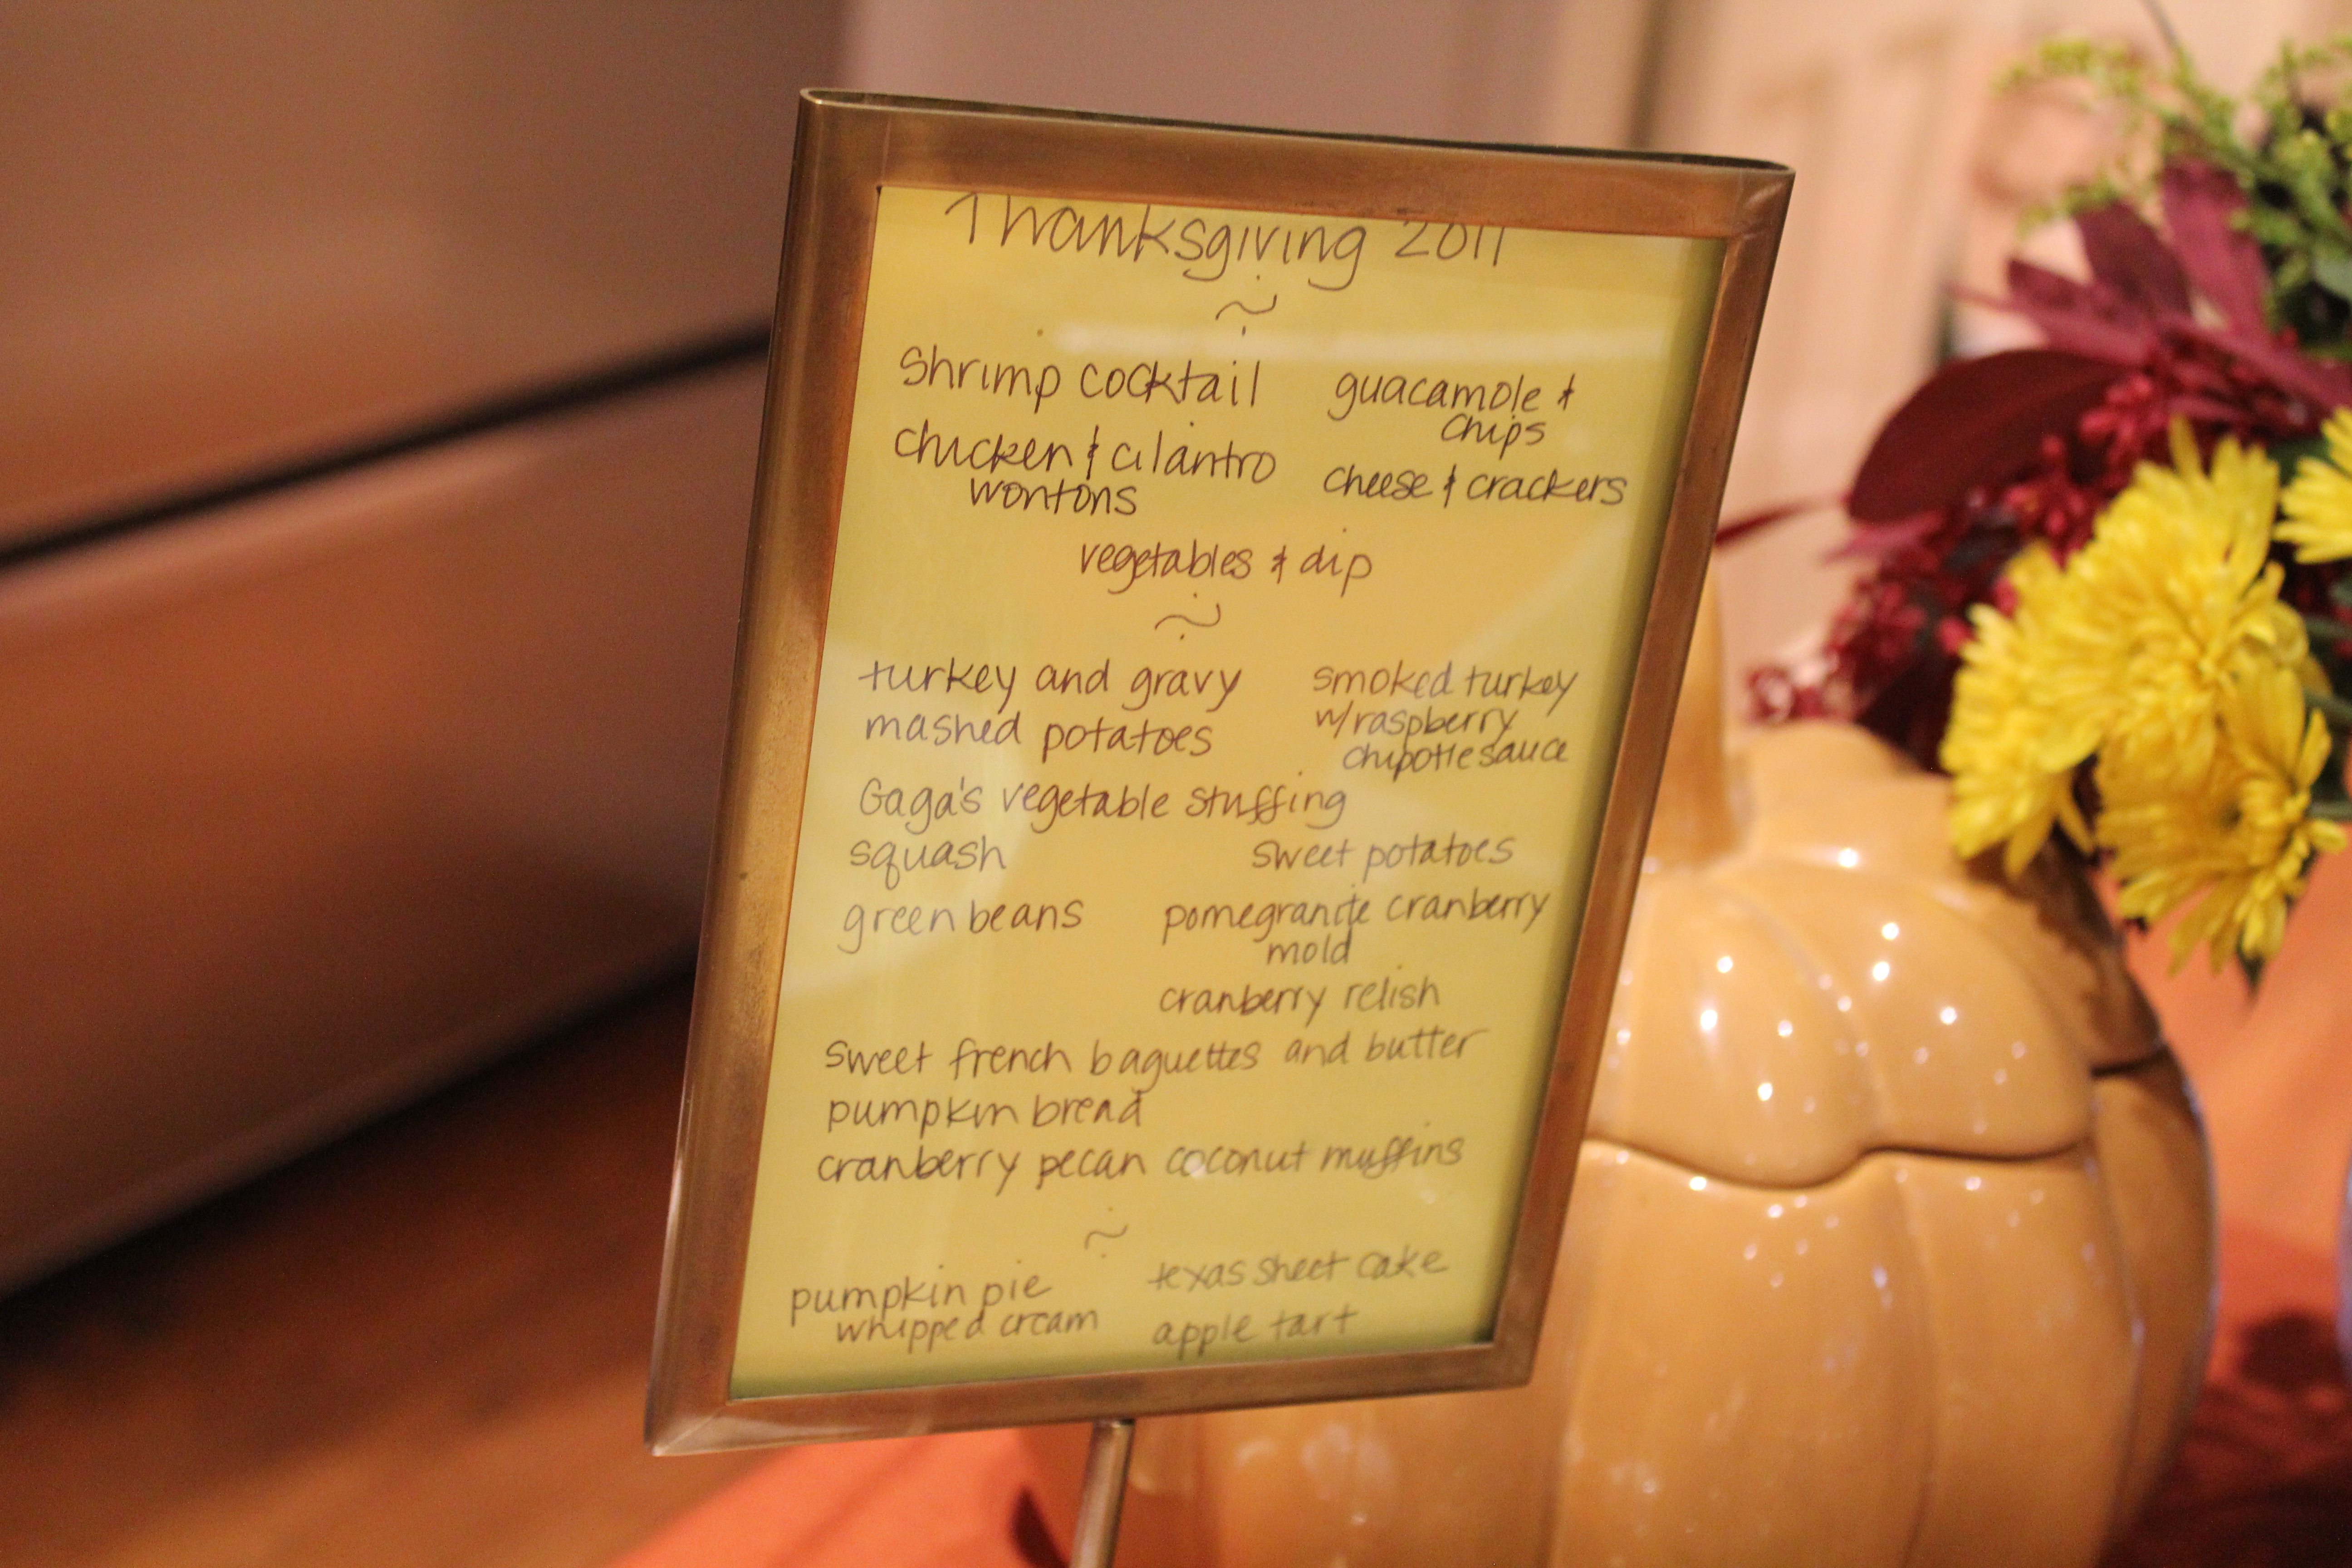 Thanksgiving 2011
~
Shrimp cocktail
guacamole & chips
chicken & cilantro
wontons
cheese & crackers
vegetables & dip
~
turkey and gravy
smoked turkey
w/raspberry
chipotle sauce
mashed potatoes
Gaga's vegetable stuffing
squash
sweet potatoes
green beans
pomegranite cranberry
mold
cranberry relish
sweet french baguettes and butter
pumpkin bread
cranberry pecan coconut muffins
~
pumpkin pie
whipped cream
texas sheet cake
apple tart